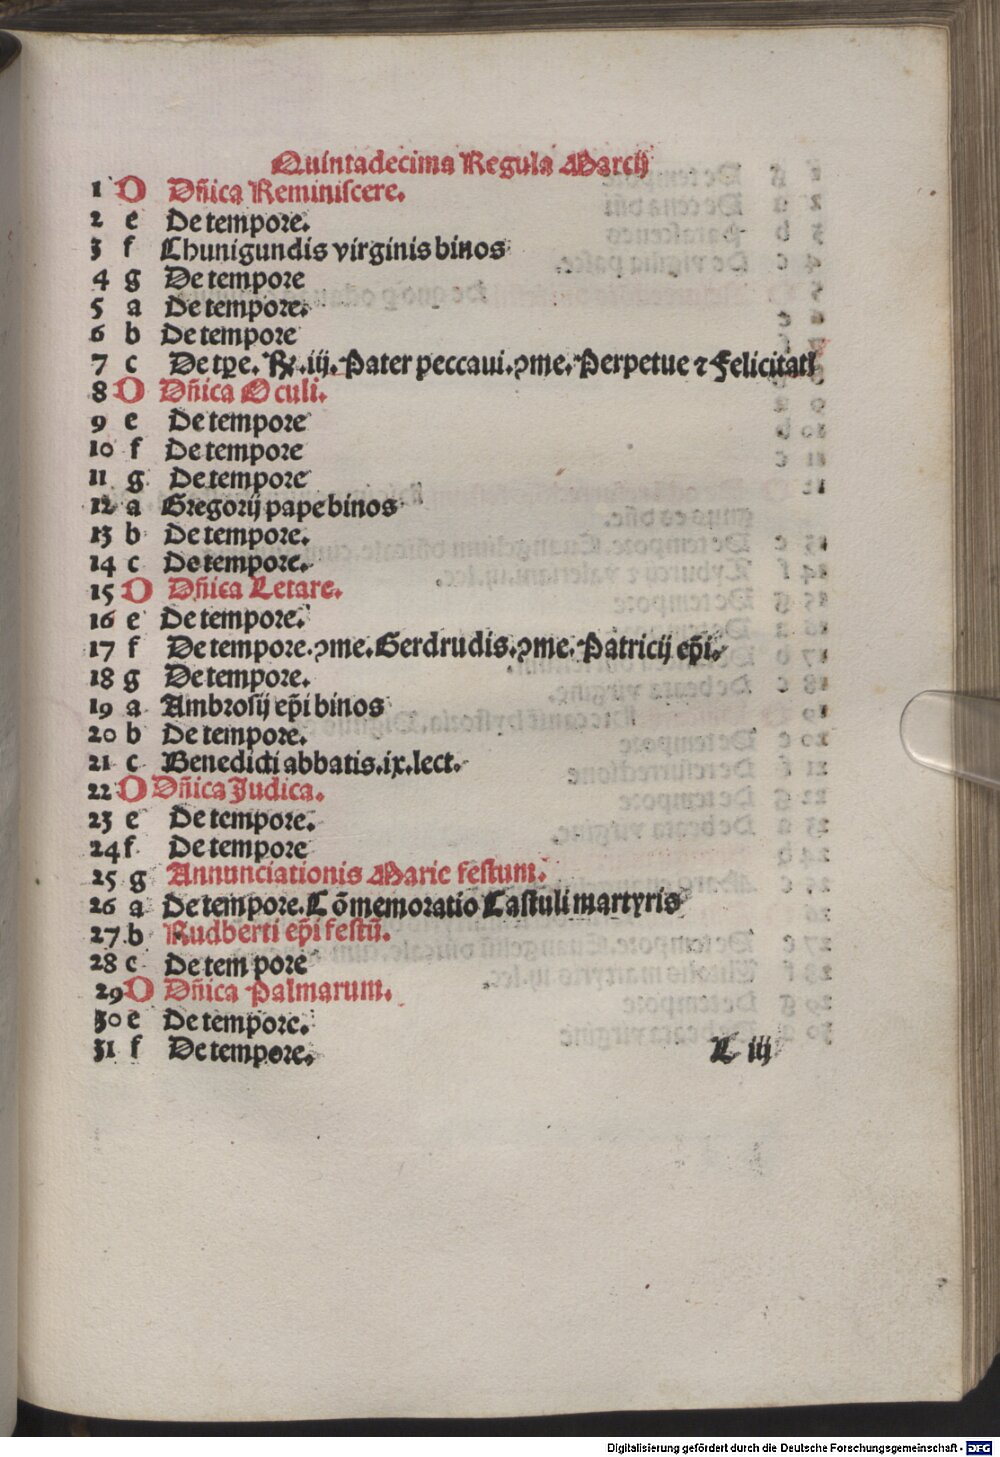 Quintadecima Regula Marcij
1 D Dñica Reminiscere.
2 e De tempore.
3 f Chunigundis virginis binos
4 g De tempore
5 a De tempore.
6 b De tempore
7 c De tꝑe. ℟. iij. Pater peccaui. ꝯme. Perpetue ⁊ Felicitatꝭ
8 D Dñica Oculi.
9 e De tempore
10 f De tempore
11 g De tempore
12 a Gregorij pape binos
13 b De tempore.
14 c De tempore.
15 D Dñica Letare.
16 e De tempore.
17 f De tempore. ꝯme. Gerdrudis. ꝯme. Patricij ep̄i.
18 g De tempore.
19 a Ambrosij ep̄i binos
20 b De tempore.
21 c Benedicti abbatis. ix. lect.
22 D Dñica Judica.
23 e De tempore.
24 f De tempore
25 g Annunciationis Marie festum.
26 a De tempore. Cōmemoratio Castuli martyris
27 b Rudberti ep̄i festū.
28 c De tempore
29 D Dñica Palmarum.
30 e De tempore.
31 f De tempore.
L iij
Digitalisierung gefördert durch die Deutsche Forschungsgemeinschaft - DFG